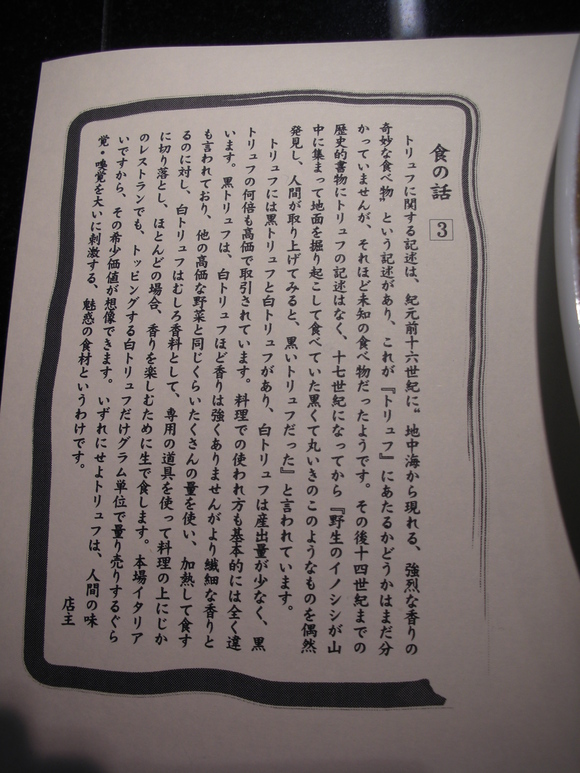 食の話 3
トリュフに関する記述は、紀元前十六世紀に“地中海から現れる、強烈な香りの
奇妙な食べ物”という記述があり、これが『トリュフ』にあたるかどうかはまだ分
かっていませんが、それほど未知の食べ物だったようです。その後十四世紀までの
歴史的書物にトリュフの記述はなく、十七世紀になってから『野生のイノシシが山
中に集まって地面を掘り起こして食べていた黒くて丸いきのこのようなものを偶然
発見し、人間が取り上げてみると、黒いトリュフだった』と言われています。
トリュフには黒トリュフと白トリュフがあり、白トリュフは産出量が少なく、黒
トリュフの何倍も高価で取引されています。料理での使われ方も基本的には全く違
います。黒トリュフは、白トリュフほど香りは強くありませんがより繊細な香りと
も言われており、他の高価な野菜と同じくらいたくさんの量を使い、加熱して食す
るのに対し、白トリュフはむしろ香料として、専用の道具を使って料理の上にじか
に切り落とし、ほとんどの場合、香りを楽しむために生で食します。本場イタリア
のレストランでも、トッピングする白トリュフだけグラム単位で量り売りするぐら
いですから、その希少価値が想像できます。いずれにせよトリュフは、人間の味
覚・嗅覚を大いに刺激する、魅惑の食材というわけです。
店主